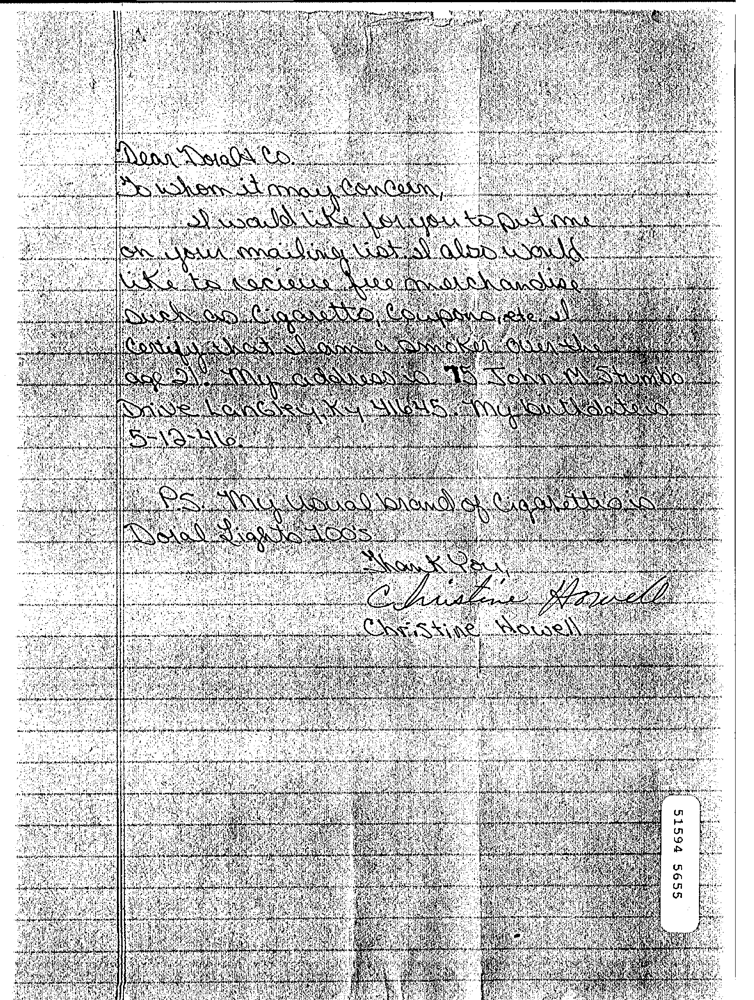 Dear Doral & Co.
To whom it may concern,
I would like for you to put me
on your mailing list. I also would
like to recieve free merchandise
such as Cigaretts, Coupons, etc. I
certify that I am a smoker over the
age 21. My address is 75 John M. Stumbo
Drive Langley, Ky 41645. My birthdate is
5-12-46.
P.S. My usual brand of Cigarettes is
Doral Lights 100s
Thank You,
Christine Howell
Christine Howell
51594 5655